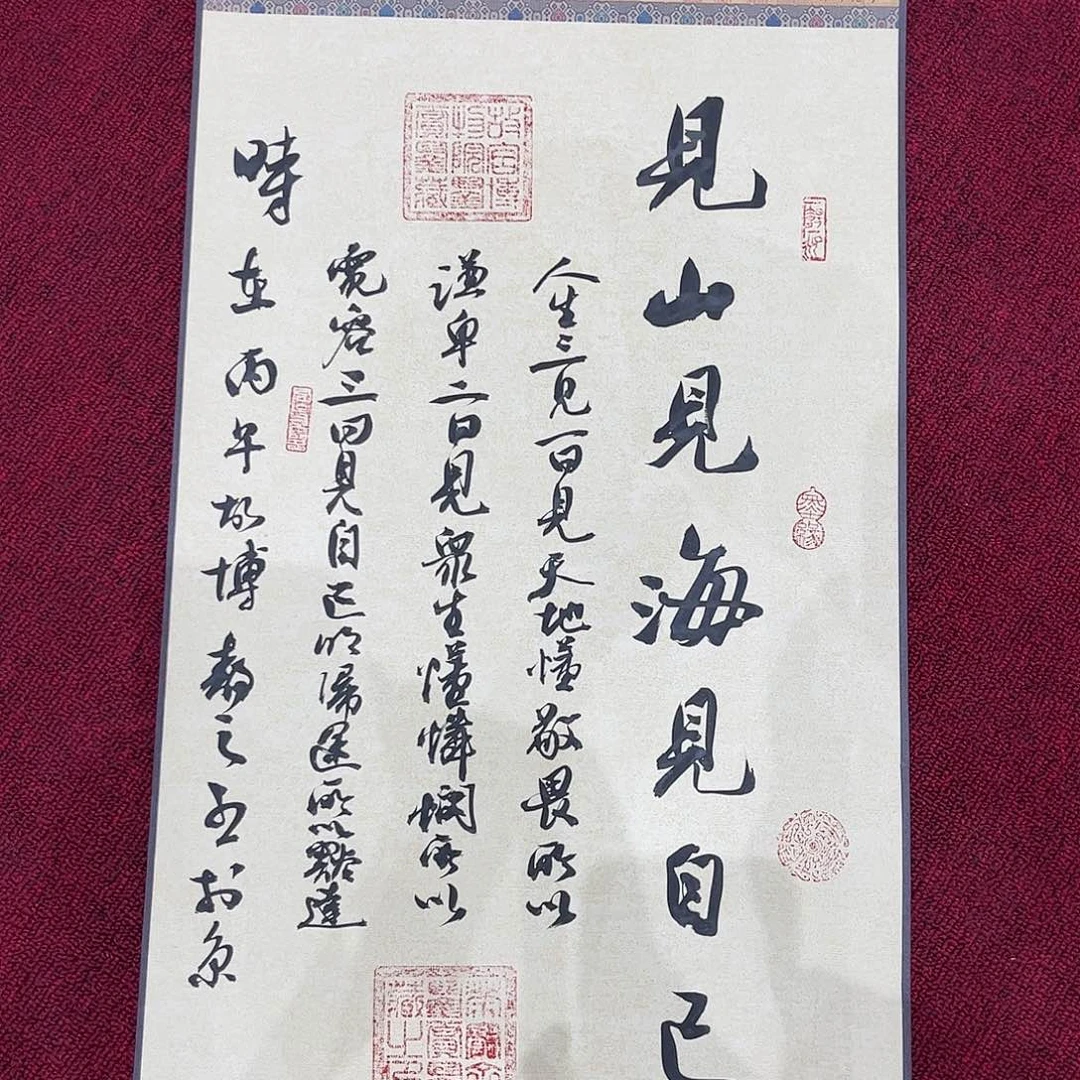 見山見海見自己
人生三見一曰見天地懂敬畏所以
謙卑二曰見眾生懂憐憫所以
寬容三曰見自己明歸途所以豁達
時在丙午故博靜之書於京
故宮博物院